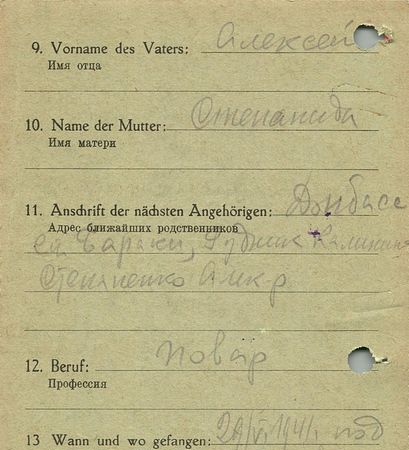 9. Vorname des Vaters: Алексей
Имя отца
10. Name der Mutter: Степанида
Имя матери
11. Anschrift der nächsten Angehörigen: Донбасс
Адрес ближайших родственников
Бараки, Рудник Калинина
Степаненко Алкр
12. Beruf: повар
Профессия
13 Wann und wo gefangen: под